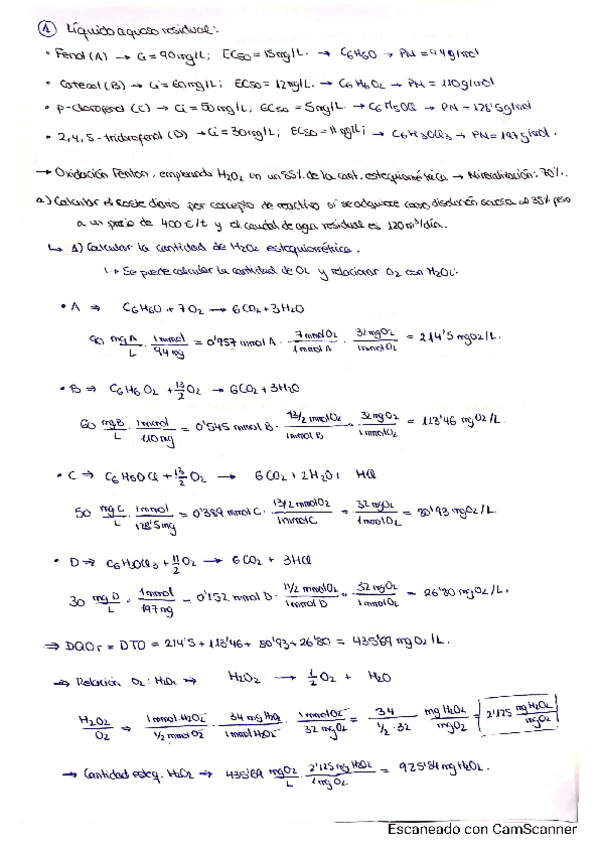 ① Líquido acuoso residual:
• Fenol (A) → Ci = 90mg/L; EC50 = 15mg/L. → C6H6O → PM = 94g/mol
• Catecol (B) → Ci = 60mg/L; EC50 = 12mg/L → C6H6O2 → PM = 110g/mol
• p-Clorofenol (C) → Ci = 50mg/L; EC50 = 5mg/L → C6H5OCl → PM = 128'5g/mol
• 2,4,5-triclorofenol (D) → Ci = 30mg/L; EC50 = 11mg/L; → C6H3OCl3 → PM = 197g/mol.
→ Oxidación Fenton, empleando H2O2 en un 85% de la cant. estequiométrica → Mineralización: 70%.
a) Calcular el coste diario por concepto de reactivo si se adquiere como disolución acuosa al 35% peso
a un precio de 400€/t y el caudal de agua residual es 120m³/día.
↳ 1) Calcular la cantidad de H2O2 estequiométrica.
↳ Se puede calcular la cantidad de O2 y relacionar O2 con H2O2:
• A ⇒ C6H6O + 7O2 → 6CO2 + 3H2O
90 mgA/L · 1mmol/94mg = 0'957 mmol A · 7mmolO2/1mmol A · 32mgO2/1mmolO2 = 214'5 mgO2/L.
• B ⇒ C6H6O2 + 13/2 O2 → 6CO2 + 3H2O
60 mgB/L · 1mmol/110mg = 0'545 mmol B · 13/2 mmolO2/1mmol B · 32mgO2/1mmolO2 = 113'46 mgO2/L.
• C ⇒ C6H5OCl + 13/2 O2 → 6CO2 + 2H2O + HCl
50 mgC/L · 1mmol/128'5mg = 0'389 mmol C · 13/2 mmolO2/1mmolC · 32mgO2/1mmolO2 = 80'93 mgO2/L.
• D ⇒ C6H3OCl3 + 11/2 O2 → 6CO2 + 3HCl
30 mgD/L · 1mmol/197mg = 0'152 mmol D · 11/2 mmolO2/1mmol D · 32mgO2/1mmolO2 = 26'80 mgO2/L.
⇒ DQOT = DTO = 214'5 + 113'46 + 80'93 + 26'80 = 435'69 mgO2/L.
→ Relación O2:H2O2 ⇒ H2O2 → 1/2 O2 + H2O
H2O2/O2 ⇒ 1mmol H2O2/1/2 mmolO2 · 34mg H2O2/1mmol H2O2 · 1mmolO2/32mgO2 = 34/1/2·32 mg H2O2/mgO2 = 2'125 mgH2O2/mgO2
→ Cantidad esteq. H2O2 ⇒ 435'69 mgO2/L · 2'125 mgH2O2/1mgO2 = 925'84 mgH2O2.
Escaneado con CamScanner